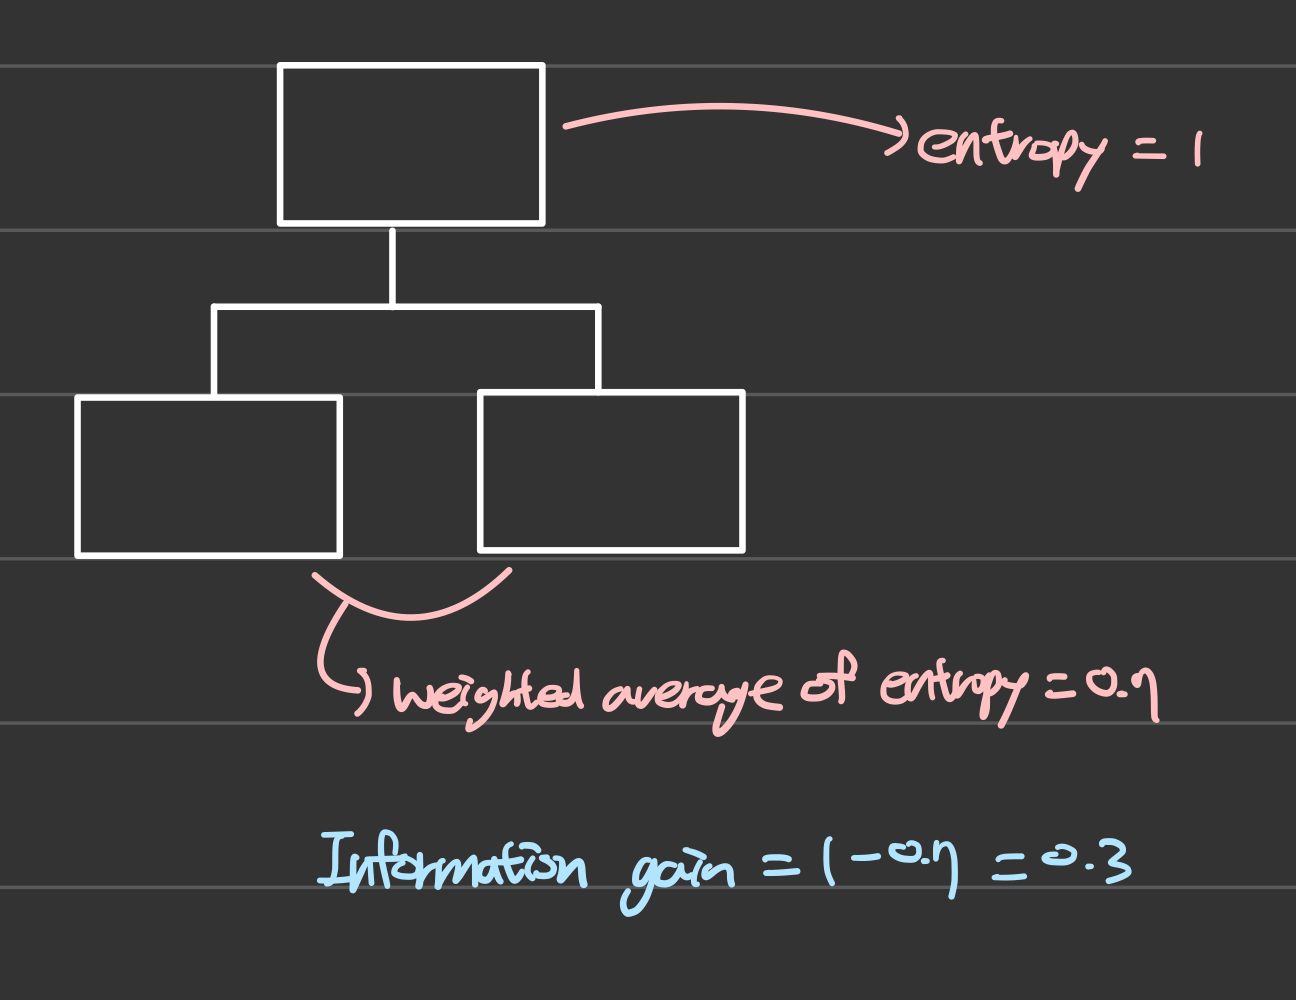 entropy = 1
weighted average of entropy = 0.7
Information gain = 1 - 0.7 = 0.3